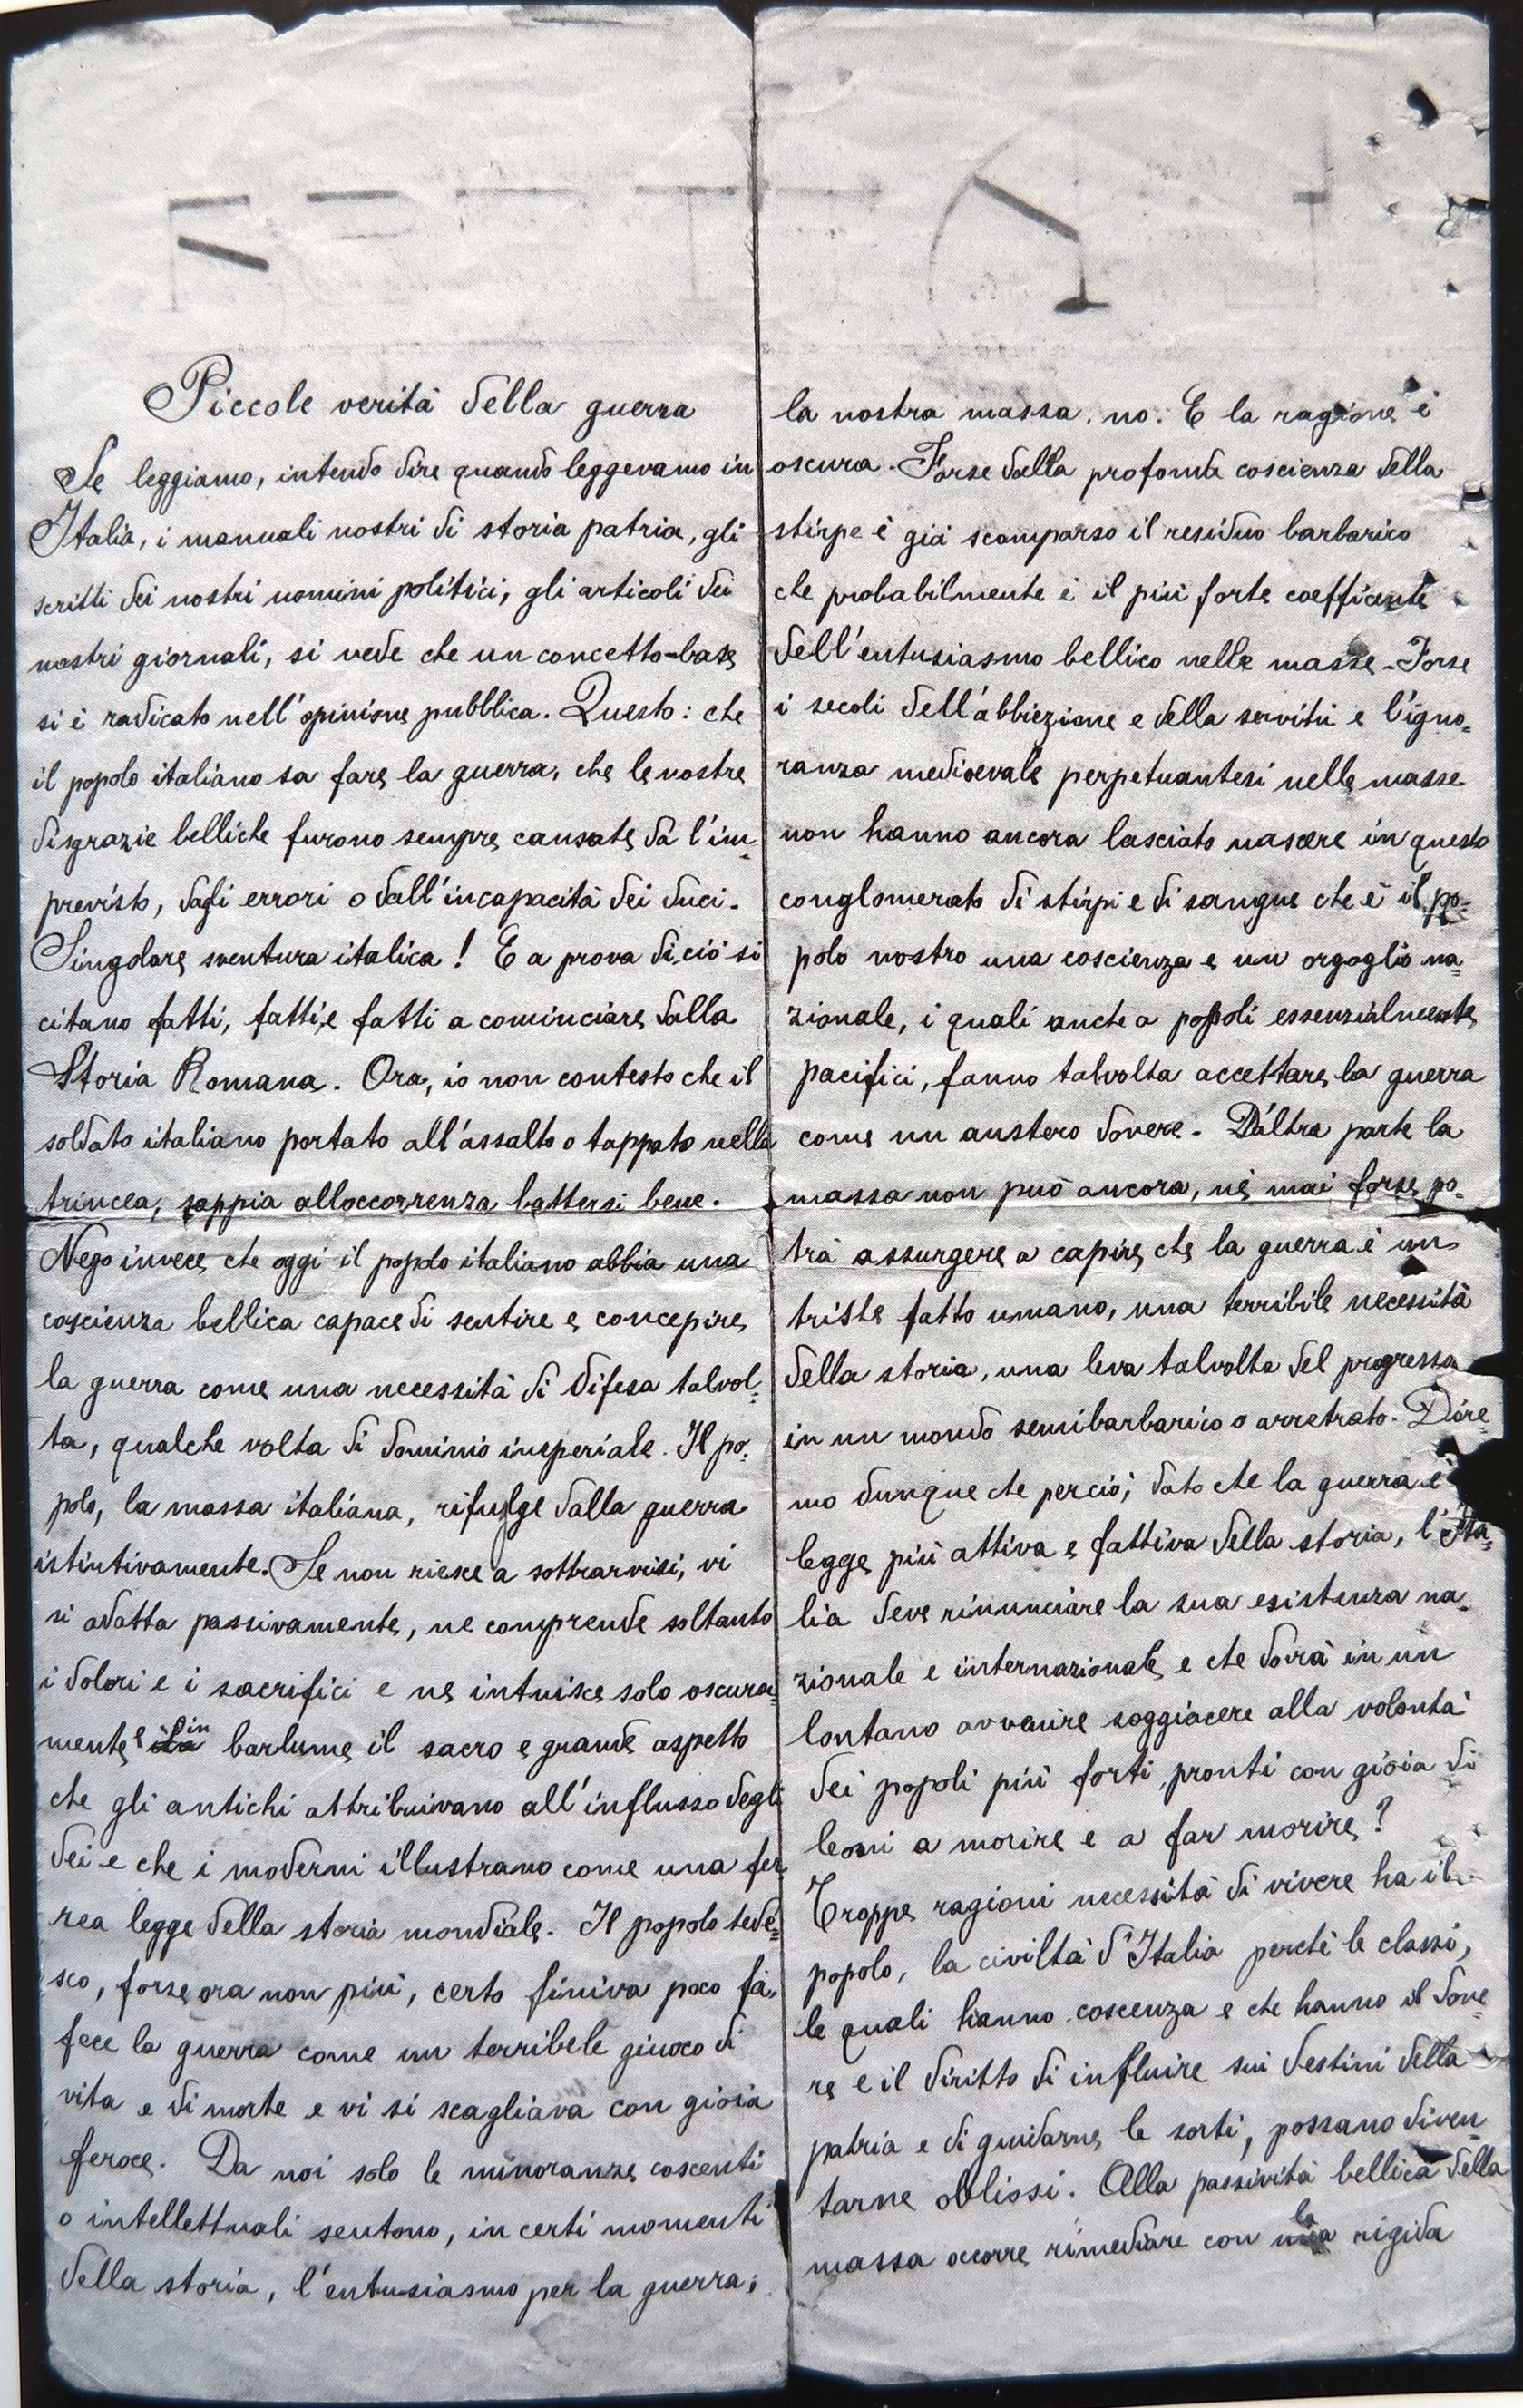 Piccole verità della guerra
Se leggiamo, intendo dire quando leggevamo in
Italia, i manuali nostri di storia patria, gli
scritti dei nostri uomini politici, gli articoli dei
nostri giornali, si vede che un concetto-base
si è radicato nell'opinione pubblica. Questo: che
il popolo italiano sa fare la guerra, che le nostre
disgrazie belliche furono sempre causate da l'im-
previsto, dagli errori o dall'incapacità dei duci.
Singolare sventura italica! E a prova di ciò si
citano fatti, fatti, e fatti a cominciare dalla
Storia Romana. Ora, io non contesto che il
soldato italiano portato all'assalto o tappato nella
trincea, sappia alloccorrenza battersi bene.
Nego invece che oggi il popolo italiano abbia una
coscienza bellica capace di sentire e concepire
la guerra come una necessità di difesa talvol-
ta, qualche volta di dominio imperiale. Il po-
polo, la massa italiana, rifulge dalla guerra
istintivamente. Se non riesce a sottrarvisi, vi
si adatta passivamente, ne comprende soltanto
i dolori e i sacrifici e ne intuisce solo oscura-
mente e in barlume il sacro e grande aspetto
che gli antichi attribuivano all'influsso degli
dei e che i moderni illustrano come una fer
rea legge della storia mondiale. Il popolo tede-
sco, forse ora non più, certo finiva poco fa,
fece la guerra come un terribele giuoco di
vita e di morte e vi si scagliava con gioia
feroce. Da noi solo le minoranze coscenti
o intellettuali sentono, in certi momenti
della storia, l'entusiasmo per la guerra;
la nostra massa, no. E la ragione è
oscura. Forse dalla profonda coscienza della
stirpe è già scomparso il residuo barbarico
che probabilmente è il più forte coefficente
dell'entusiasmo bellico nelle masse. Forse
i secoli dell'abbiezione e della servitù e l'igno-
ranza medioevale perpetuantesi nelle masse
non hanno ancora lasciato nascere in questo
conglomerato di stirpi e di sangue che è il po-
polo nostro una coscienza e un orgoglio na-
zionale, i quali anche a popoli essenzialmente
pacifici, fanno talvolta accettare la guerra
come un austero dovere. D'altra parte la
massa non può ancora, nè mai forse po-
trà assurgere a capire che la guerra è un
triste fatto umano, una terribile necessità
della storia, una leva talvolta del progresso
in un mondo semibarbarico o arretrato. Dire-
mo dunque che perciò, dato che la guerra è
legge più attiva e fattiva della storia, l'Ita-
lia deve rinunciare la sua esistenza na-
zionale e internazionale e che dovrà in un
lontano avvenire soggiacere alla volontà
dei popoli più forti, pronti con gioia di
leoni a morire e a far morire?
Troppe ragioni necessità di vivere ha il
popolo, la civiltà d'Italia perchè le classi,
le quali hanno coscenza e che hanno il dove-
re e il diritto di influire sui destini della
patria e di guidarne le sorti, possano diven-
tarne obliosi. Alla passività bellica della
massa occorre rimediare con la rigida